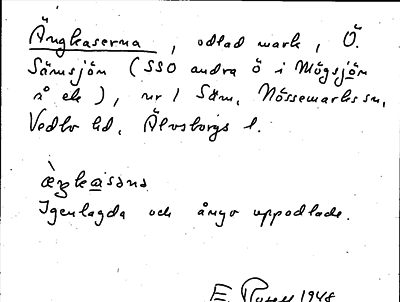 Ängkaserna, odlad mark, Ö.
Sämsjön (SSO andra ö i Mögsjön
å ek), nr 1 Säm, Nössemarks sn,
Vedbo hd, Älvsborgs l.
Igenlagda och ånyo uppodlade.
E. 1948